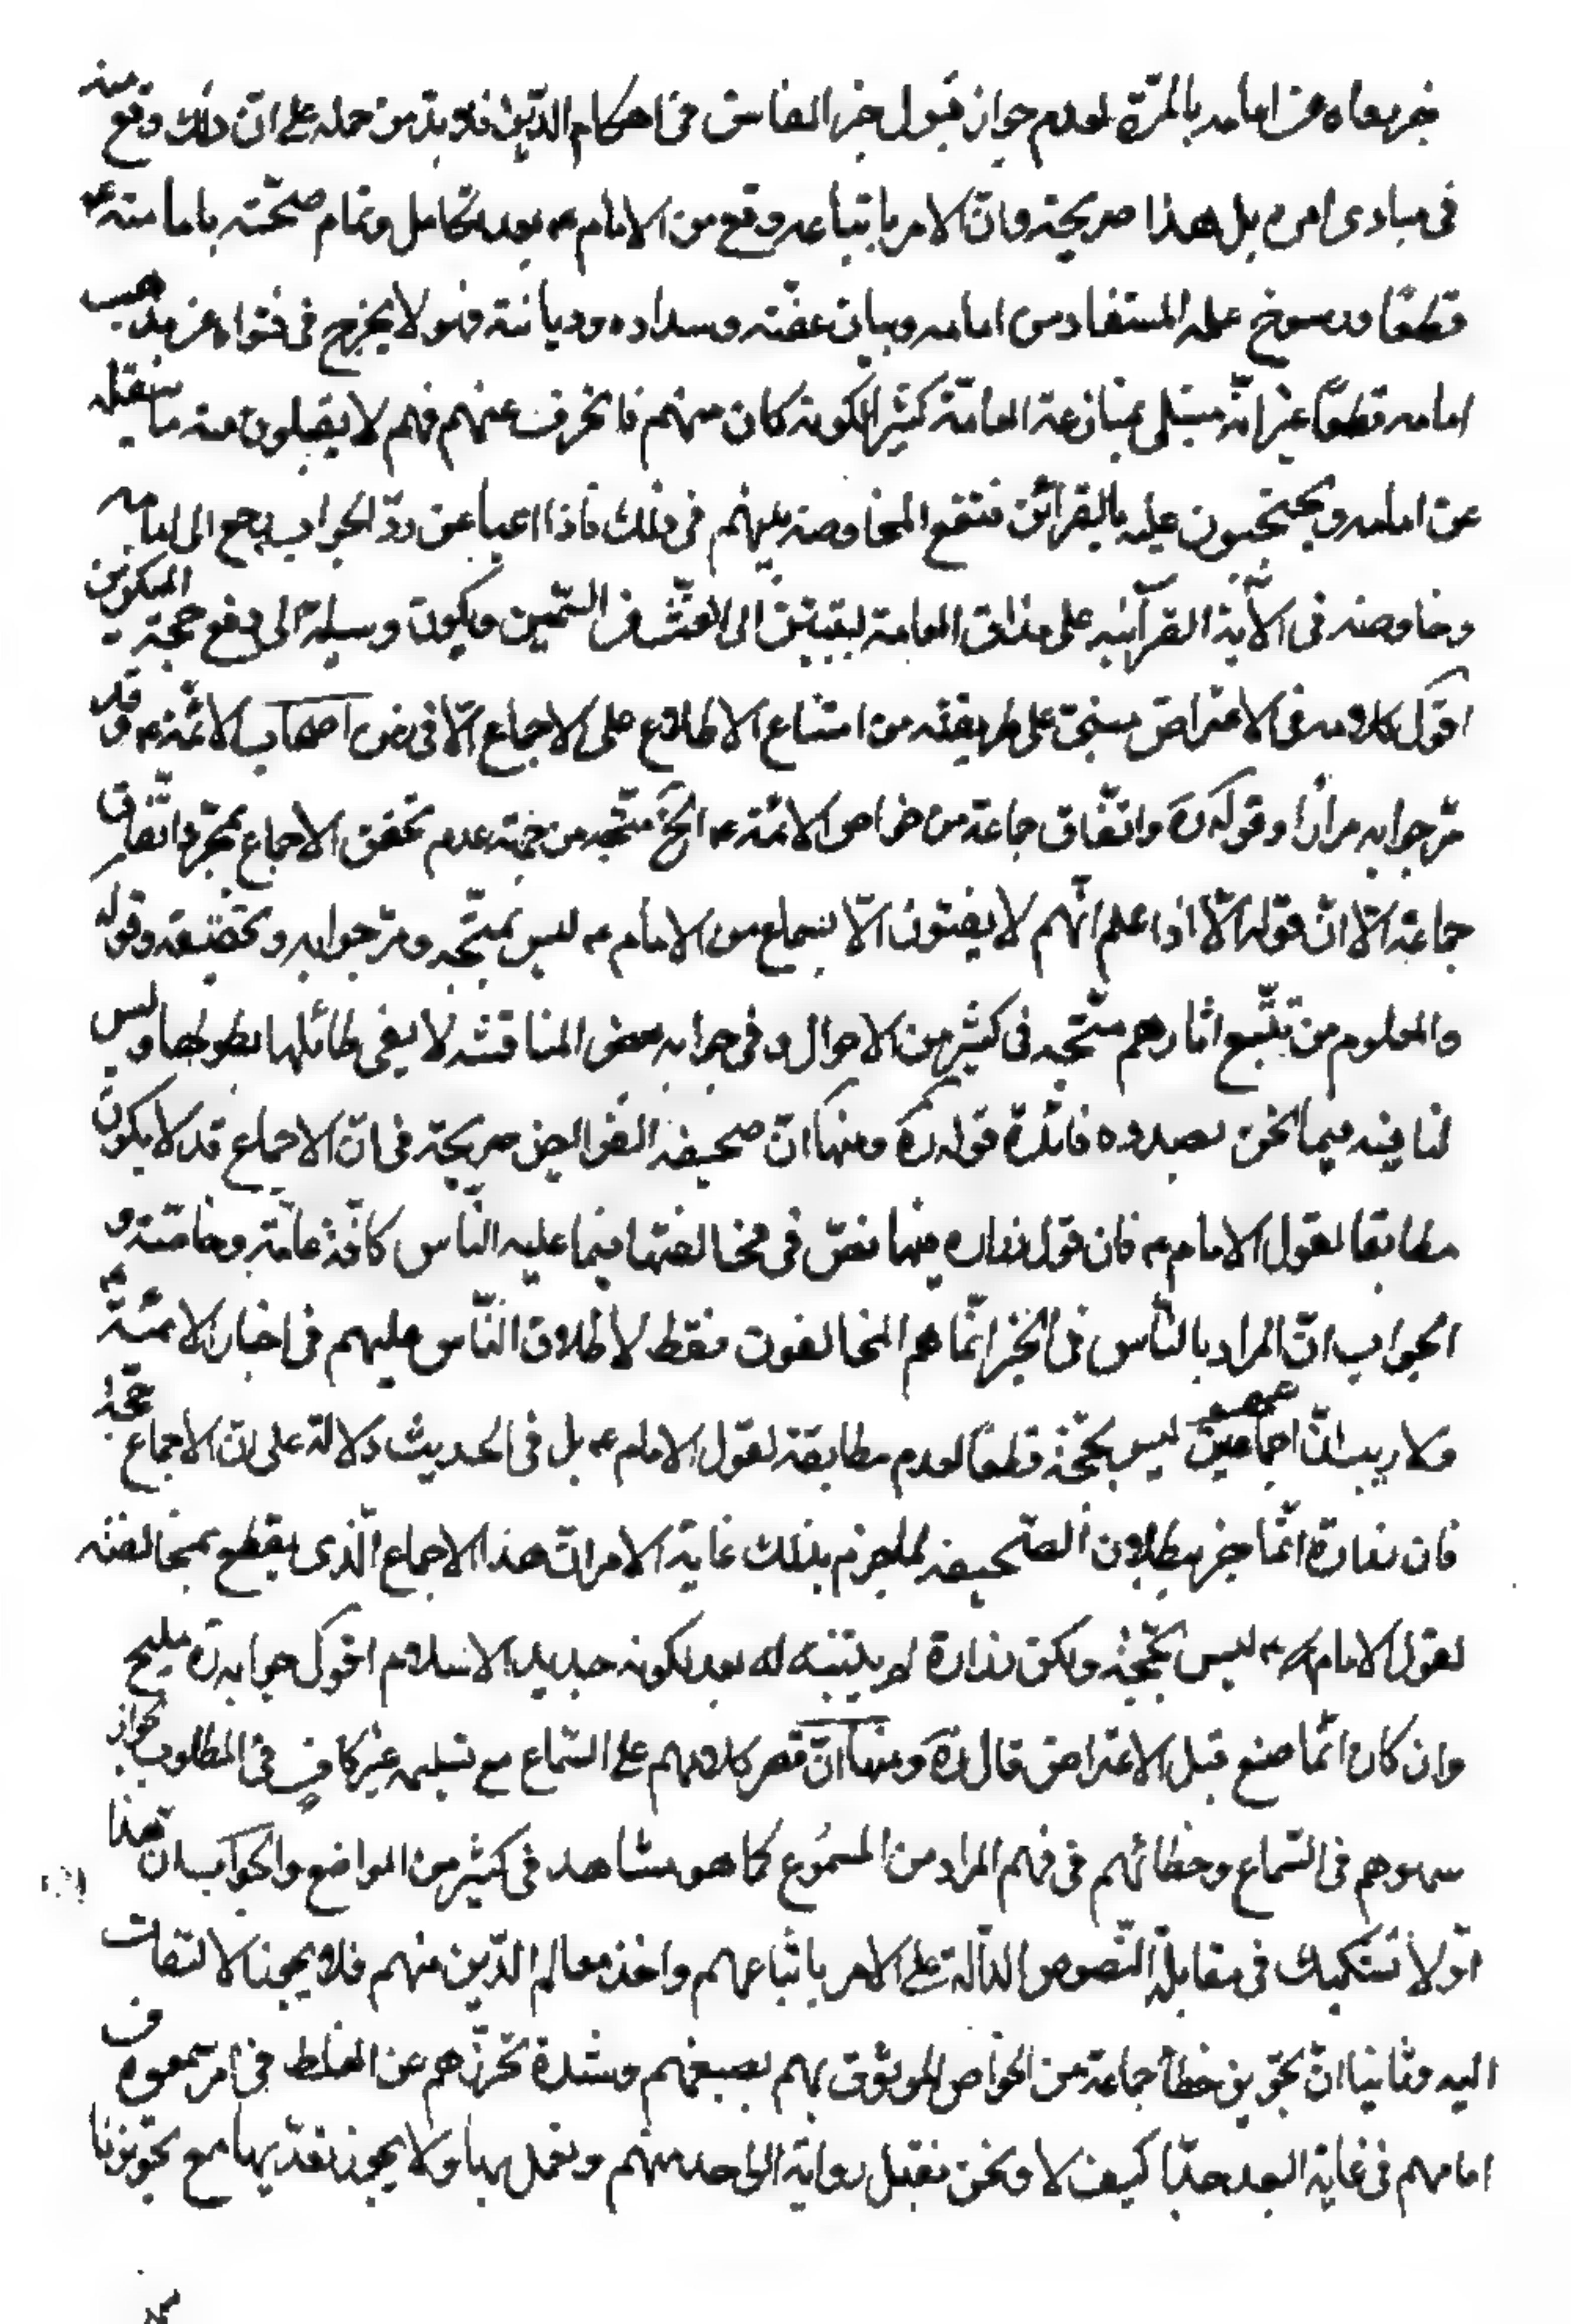 خبر رواه عن امامه بالمرّة لعدم جواز قبول خبر الفاسق فى احكام الدّين فلا بدّ من حمله على انّ ذلك وقع منه
فى مبادى امره بل هذا صريحة وانّ الامر باتباعه وقع من الامام ع بعد تكامل وتمام صحّته بامامته ع
قطعًا ورسوخ علمه المستفاد من امامه وبيان عفّته وسداده وديانته فهو لا يخرج فى فتواه عن مذهب
امامه قطعًا غير انّه مبتلى بمنازعة العامّة كثيرًا لكونه كان منهم فانحرف عنهم فهم لا يقبلون منه ما ينقله
عن امامه ويحتجّون عليه بالقرائن فتقع المخاوصة بينهم فى ذلك فاذا اعيا عن ردّ الجواب يرجع الى امامه
وخاوصه فى الآية القرآنيه على مذاق العامة ليتبيّن الغثّ من السّمين ويكون وسيلة الى دفع حجّة المنكرين
اقول كلامه فى الاعتراض مبنىّ على طريقته من امتناع الاطلاع على الاجماع الّا فى زمن اصحاب الائمّة ع وقد
مّر جوابه مرارًا وقوله ره واتّفاق جماعة من خواص الائمّة ع الخ متّجه من جهة عدم تحقق الاجماع بمجرّد اتّفاق
جماعة الّا انّ قوله الّا اذا علم انّهم لا يفتون الّا بسماع من الامام ع ليس بمتّجه ومرّ جوابه وتحقيقه وقوله
والمعلوم من تتبّع اثارهم متّجه فى كثير من الاحوال وفى جوابه بعض المناقشه لا يفى طائلها بطولها وليس
لنا فيه فيما نحن بصدده فائدة قوله ره ومنها انّ صحيفة الفرائض صريحة فى انّ الاجماع قد لا يكون
مطابقا لقول الامام ع فان قول زراره فيها نصّ فى مخالفتها فيما عليه النّاس كافّة عامّة وخاصّة و
الجواب انّ المراد بالنّاس فى الخبر انّما هم المخالفون فقط لاطلاق النّاس عليهم فى اخبار الائمّة ع
ولا ريب انّ اجماعهم ليس بحجّة قطعًا لعدم مطابقة لقول الامام ع بل فى الحديث دلالة على انّ الاجماع حجّة
فان زرارة انّما جزم ببطلان الصّحيفة لجزم بذلك غاية الامر انّ هذا الاجماع الّذى يقطع بمخالفته
لقول الامام ع ليس بحجّة ولكن زرارة لم يتنبه له بعد لكونه جديد الاسلام اقول جوابه ره مليح
وان كان انّما صنع قبل الاعتراض قال ره ومنها انّ قصر كلامهم على السّماع مع تسليمه غير كافٍ فى المطلوب لجواز
سهوهم فى السّماع وخطائهم فى فهم المراد من المسمُوع كما هو مشاهد فى كثير من المواضع والجواب انّ هذا
اوّلا تشكيك فى مقابلة النّصوص الدّالّة على الامر باتّباعهم واخذ معالم الدّين منهم فلا يجب الالتفات
اليه وثانيا انّ تجويز خطأ جماعة من الخواص الموثوق بهم وشدة تحرّزهم عن الغلط فى امر سمعوه من
امامهم فى غاية البعد جدّا كيف لا ونحن نقبل رواية الواحد منهم ونعمل بها ولا يجوز تعدّيها مع تجويزنا